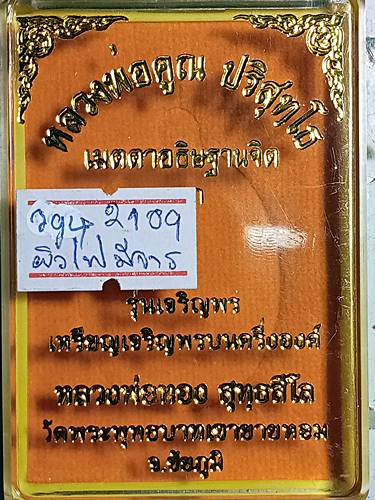 หลวงพ่อคูณ ปริสุทฺโธ
เมตตาอธิษฐานจิต
2109
ผิวไฟ มีจาร
รุ่นเจริญพร
เหรียญเจริญพรบนครึ่งองค์
หลวงพ่อทอง สุทฺธสีโล
วัดพระพุทธบาทเขายายหอม
จ.ชัยภูมิ